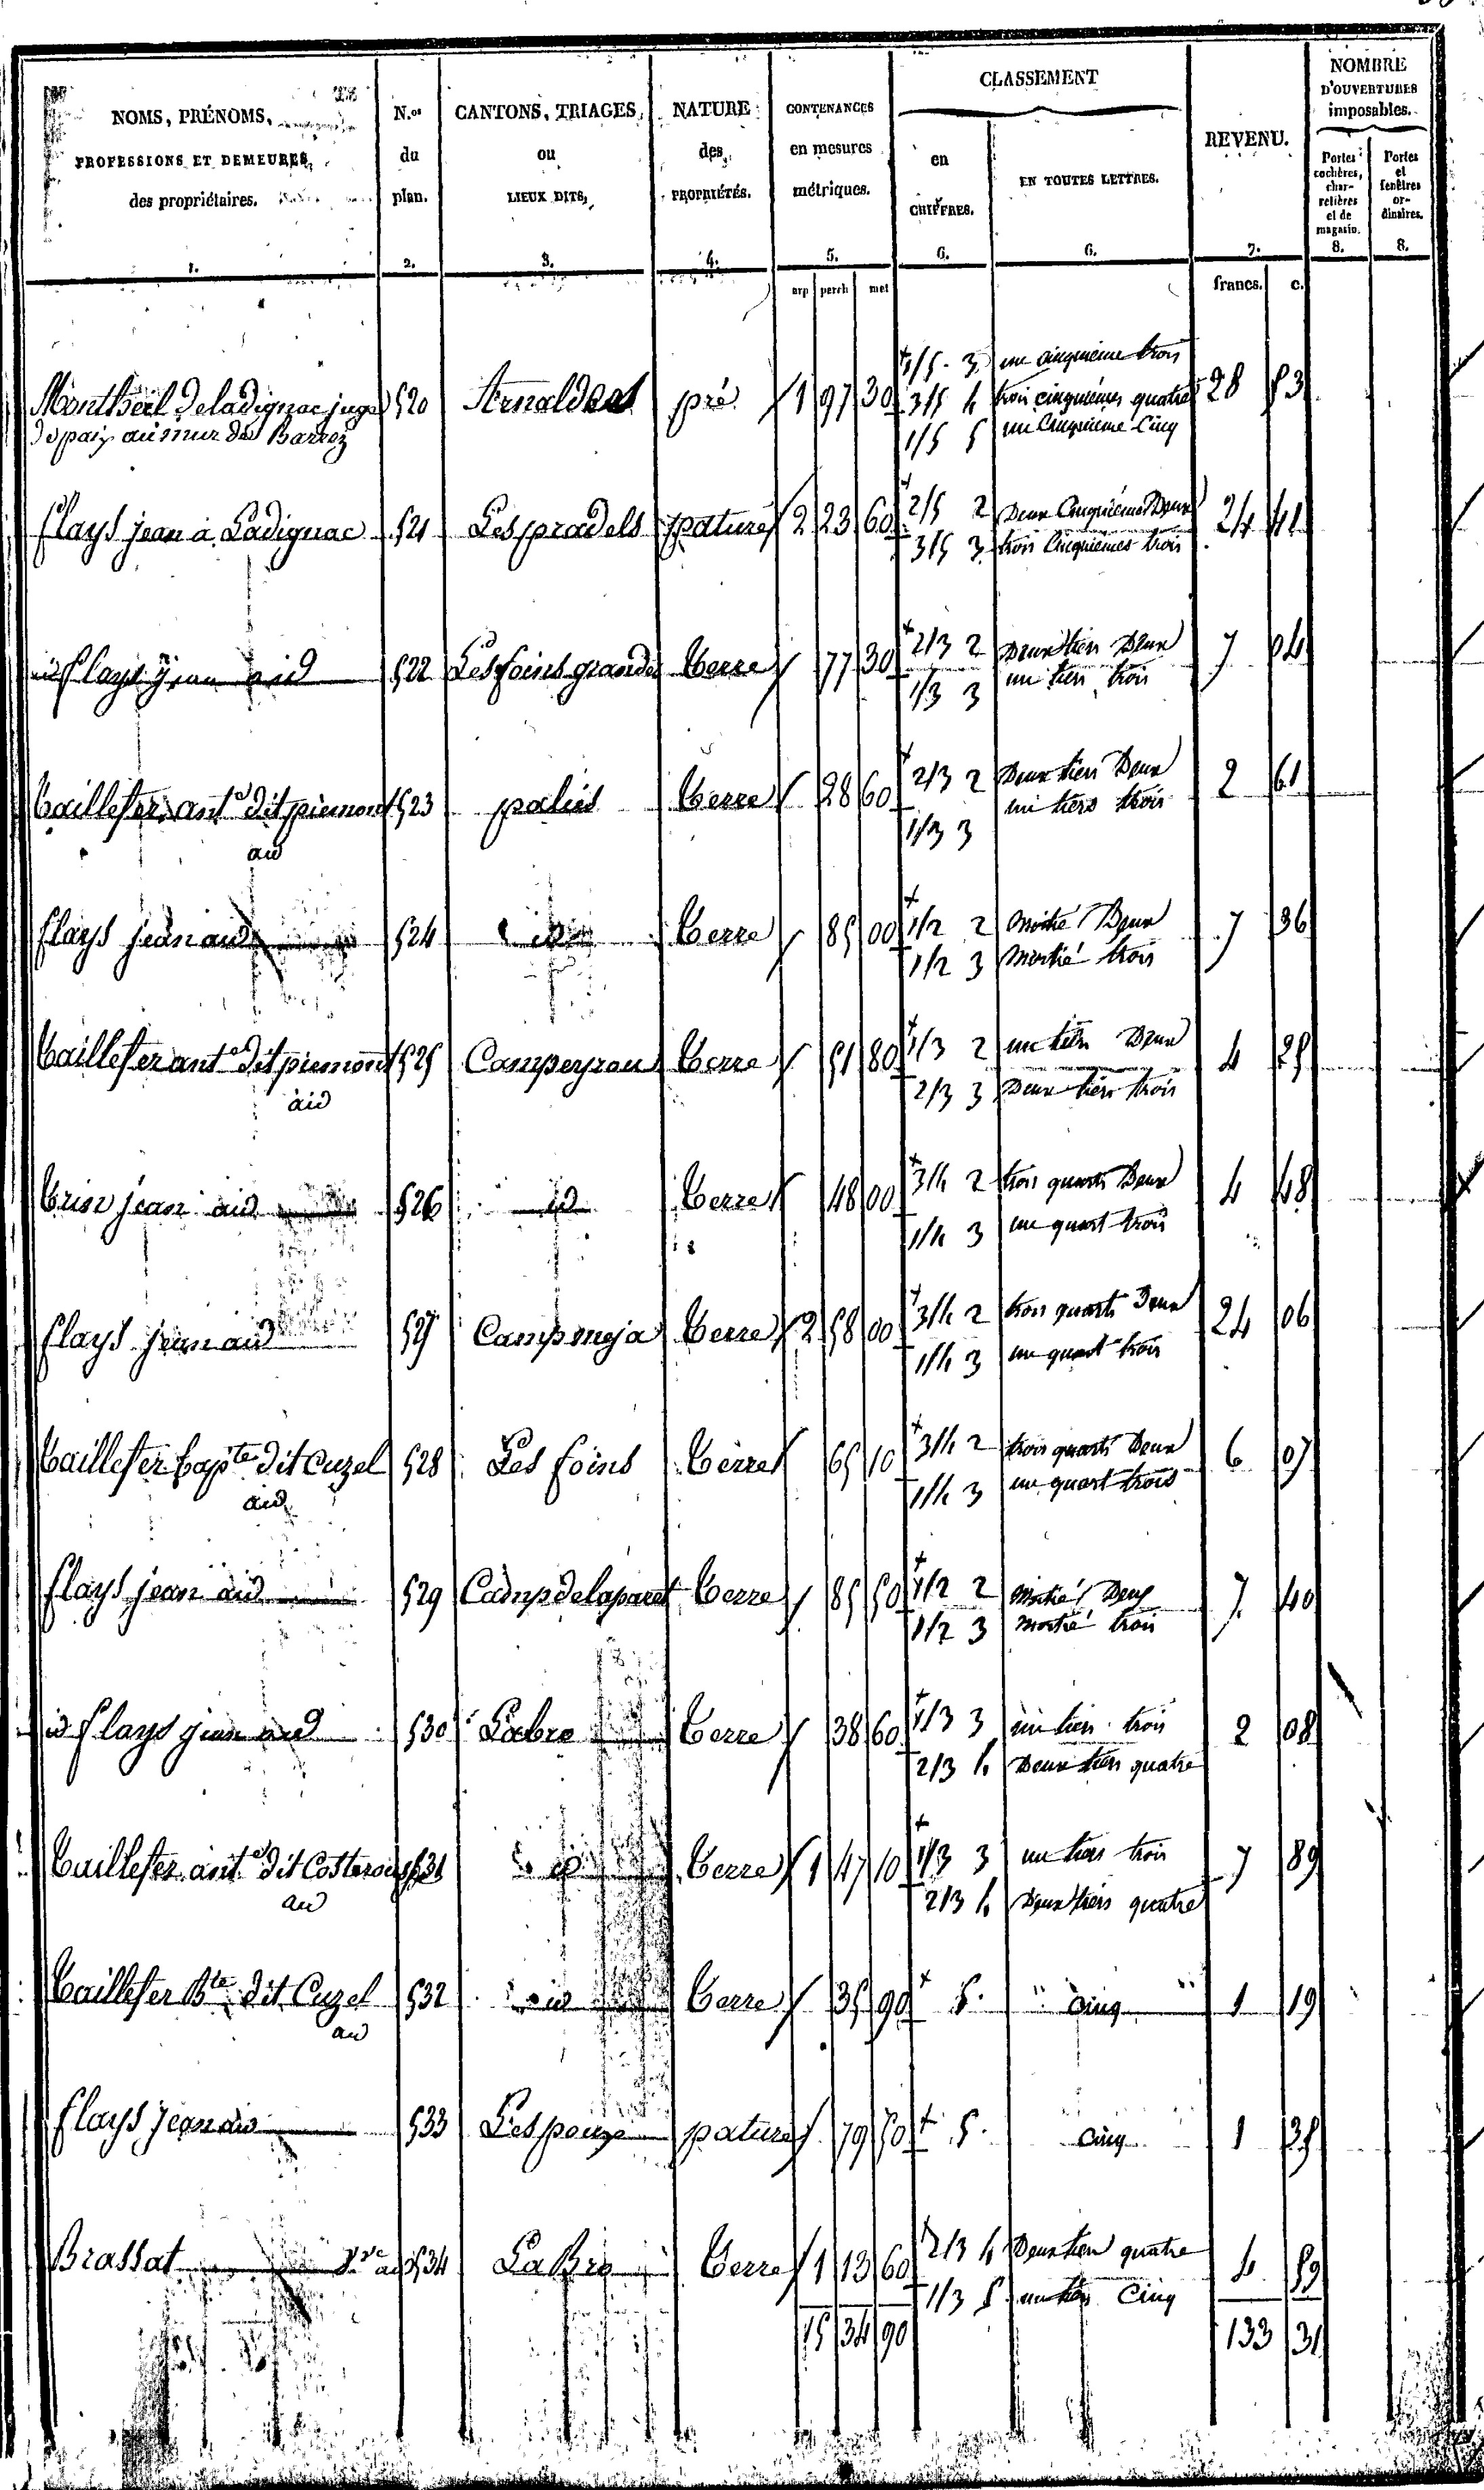 NOMS, PRÉNOMS,
PROFESSIONS ET DEMEURES
des propriétaires.
1.
N.os
du
plan.
2.
CANTONS, TRIAGES,
ou
LIEUX DITS,
3.
NATURE
des
PROPRIÉTÉS.
4.
CONTENANCES
en mesures
métriques.
5.
CLASSEMENT
en
CHIFFRES.
6.
EN TOUTES LETTRES.
6.
REVENU.
7.
NOMBRE
D'OUVERTURES
imposables.
Portes cochères, char-retières et de magasin.
8.
Portes et fenêtres or-dinaires.
8.
arp perch met francs. c.
Montheil de ladignac juge 520 pré 1 97 30 1/5 3 un cinquieme trois 28 53
de paix au mur de Barrez 3/5 4 trois cinquiémes quatre
1/5 5 un Cinquieme Cinq
flays jean à Ladignac 521 Les pradels pature 2 23 60 2/5 2 Deux Cinquiémes Deux 24 41
3/5 3 trois Cinquiemes trois
id flays jean aud 522 Les foins grandes terre 77 30 2/3 2 Deux tiers Deux 7 04
1/3 3 un tiers trois
taillefer ant.e dit piemont 523 palies terre 28 60 2/3 2 Deux tiers Deux 2 61
aud 1/3 3 un tiers trois
flays jean aud 524 id terre 85 00 1/2 2 moitié Deux 7 36
1/2 3 moitié trois
taillefer ant.e dit piemont 525 Campeyrou terre 51 80 1/3 2 un tiers Deux 4 25
aud 2/3 3 Deux tiers trois
jean aud 526 id terre 48 00 3/4 2 trois quarts Deux 4 48
1/4 3 un quart trois
flays jean aud 527 Campmeja terre 2 58 00 3/4 2 trois quarts Deux 24 06
1/4 3 un quart trois
taillefer bap.te dit Cuzel 528 Les foins terre 65 10 3/4 2 trois quarts Deux 6 07
aud 1/4 3 un quart trois
flays jean aud 529 Camp delaparet terre 85 50 1/2 2 moitié Deux 7 40
1/2 3 moitié trois
id flays jean aud 530 Labro terre 38 60 1/3 3 un tiers trois 2 08
2/3 4 Deux tiers quatre
taillefer ant.e dit 531 id terre 1 47 10 1/3 3 un tiers trois 7 89
aud 2/3 4 Deux tiers quatre
taillefer B.te dit Cuzel 532 id terre 35 90 5. " cinq " 1 19
aud
flays jean aud 533 Lespouze pature 79 50 5. cinq 1 35
Brassat aud 534 La Bro terre 1 13 60 2/3 4 Deux tiers quatre 4 59
1/3 5 un tiers Cinq
15 34 90 133 31